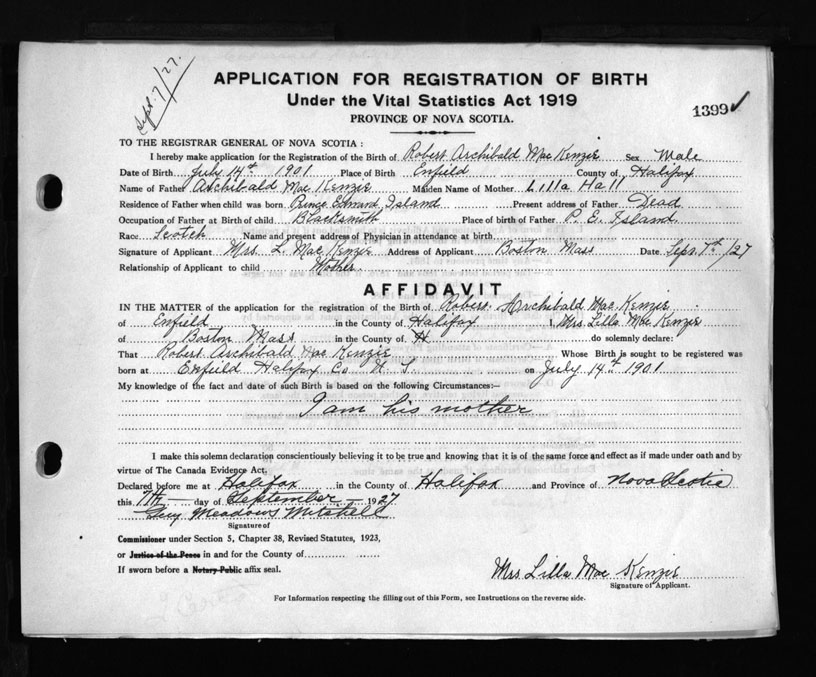 Sept. 7/27.
APPLICATION FOR REGISTRATION OF BIRTH
Under the Vital Statistics Act 1919
1399 ✓
PROVINCE OF NOVA SCOTIA.
TO THE REGISTRAR GENERAL OF NOVA SCOTIA:
I hereby make application for the Registration of the Birth of Robert Archibald MacKenzie Sex Male
Date of Birth July 14th 1901 Place of Birth Enfield County of Halifax
Name of Father Archibald MacKenzie Maiden Name of Mother Lilla Hall
Residence of Father when child was born Prince Edward Island Present address of Father Dead
Occupation of Father at Birth of child Blacksmith Place of birth of Father P. E. Island
Race Scotch Name and present address of Physician in attendance at birth
Signature of Applicant Mrs. L. MacKenzie Address of Applicant Boston Mass Date Sept. 7th/27
Relationship of Applicant to child Mother.
AFFIDAVIT
IN THE MATTER of the application for the registration of the Birth of Robert Archibald MacKenzie
of Enfield in the County of Halifax I, Mrs. Lilla MacKenzie
of Boston Mass in the County of H do solemnly declare:
That Robert Archibald MacKenzie Whose Birth is sought to be registered was
born at Enfield Halifax Co N. S. on July 14th 1901
My knowledge of the fact and date of such Birth is based on the following Circumstances:—
I am his mother
I make this solemn declaration conscientiously believing it to be true and knowing that it is of the same force and effect as if made under oath and by
virtue of The Canada Evidence Act.
Declared before me at Halifax in the County of Halifax and Province of Nova Scotia
this 7th — day of September — 1927
Guy Meadows Mitchell
Signature of
Commissioner under Section 5, Chapter 38, Revised Statutes, 1923,
or Justice of the Peace in and for the County of
If sworn before a Notary Public affix seal.
Mrs. Lilla Mac Kenzie
Signature of Applicant.
For Information respecting the filling out of this Form, see Instructions on the reverse side.